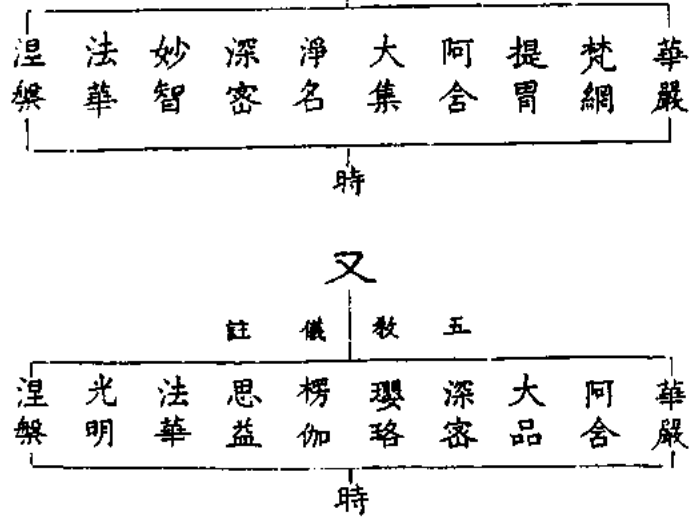 華嚴 梵網 提胃 阿含 大集 淨名 深密 妙智 法華 涅槃
時
又
五教儀註
華嚴 阿含 大品 深密 瓔珞 楞伽 思益 法華 光明 涅槃
時